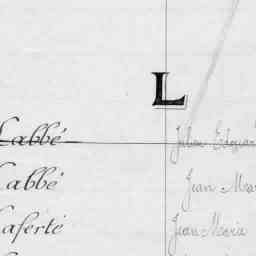 L
Labbé Julien Edouard
Labbé Jean Mar
Laferté Jean Maria